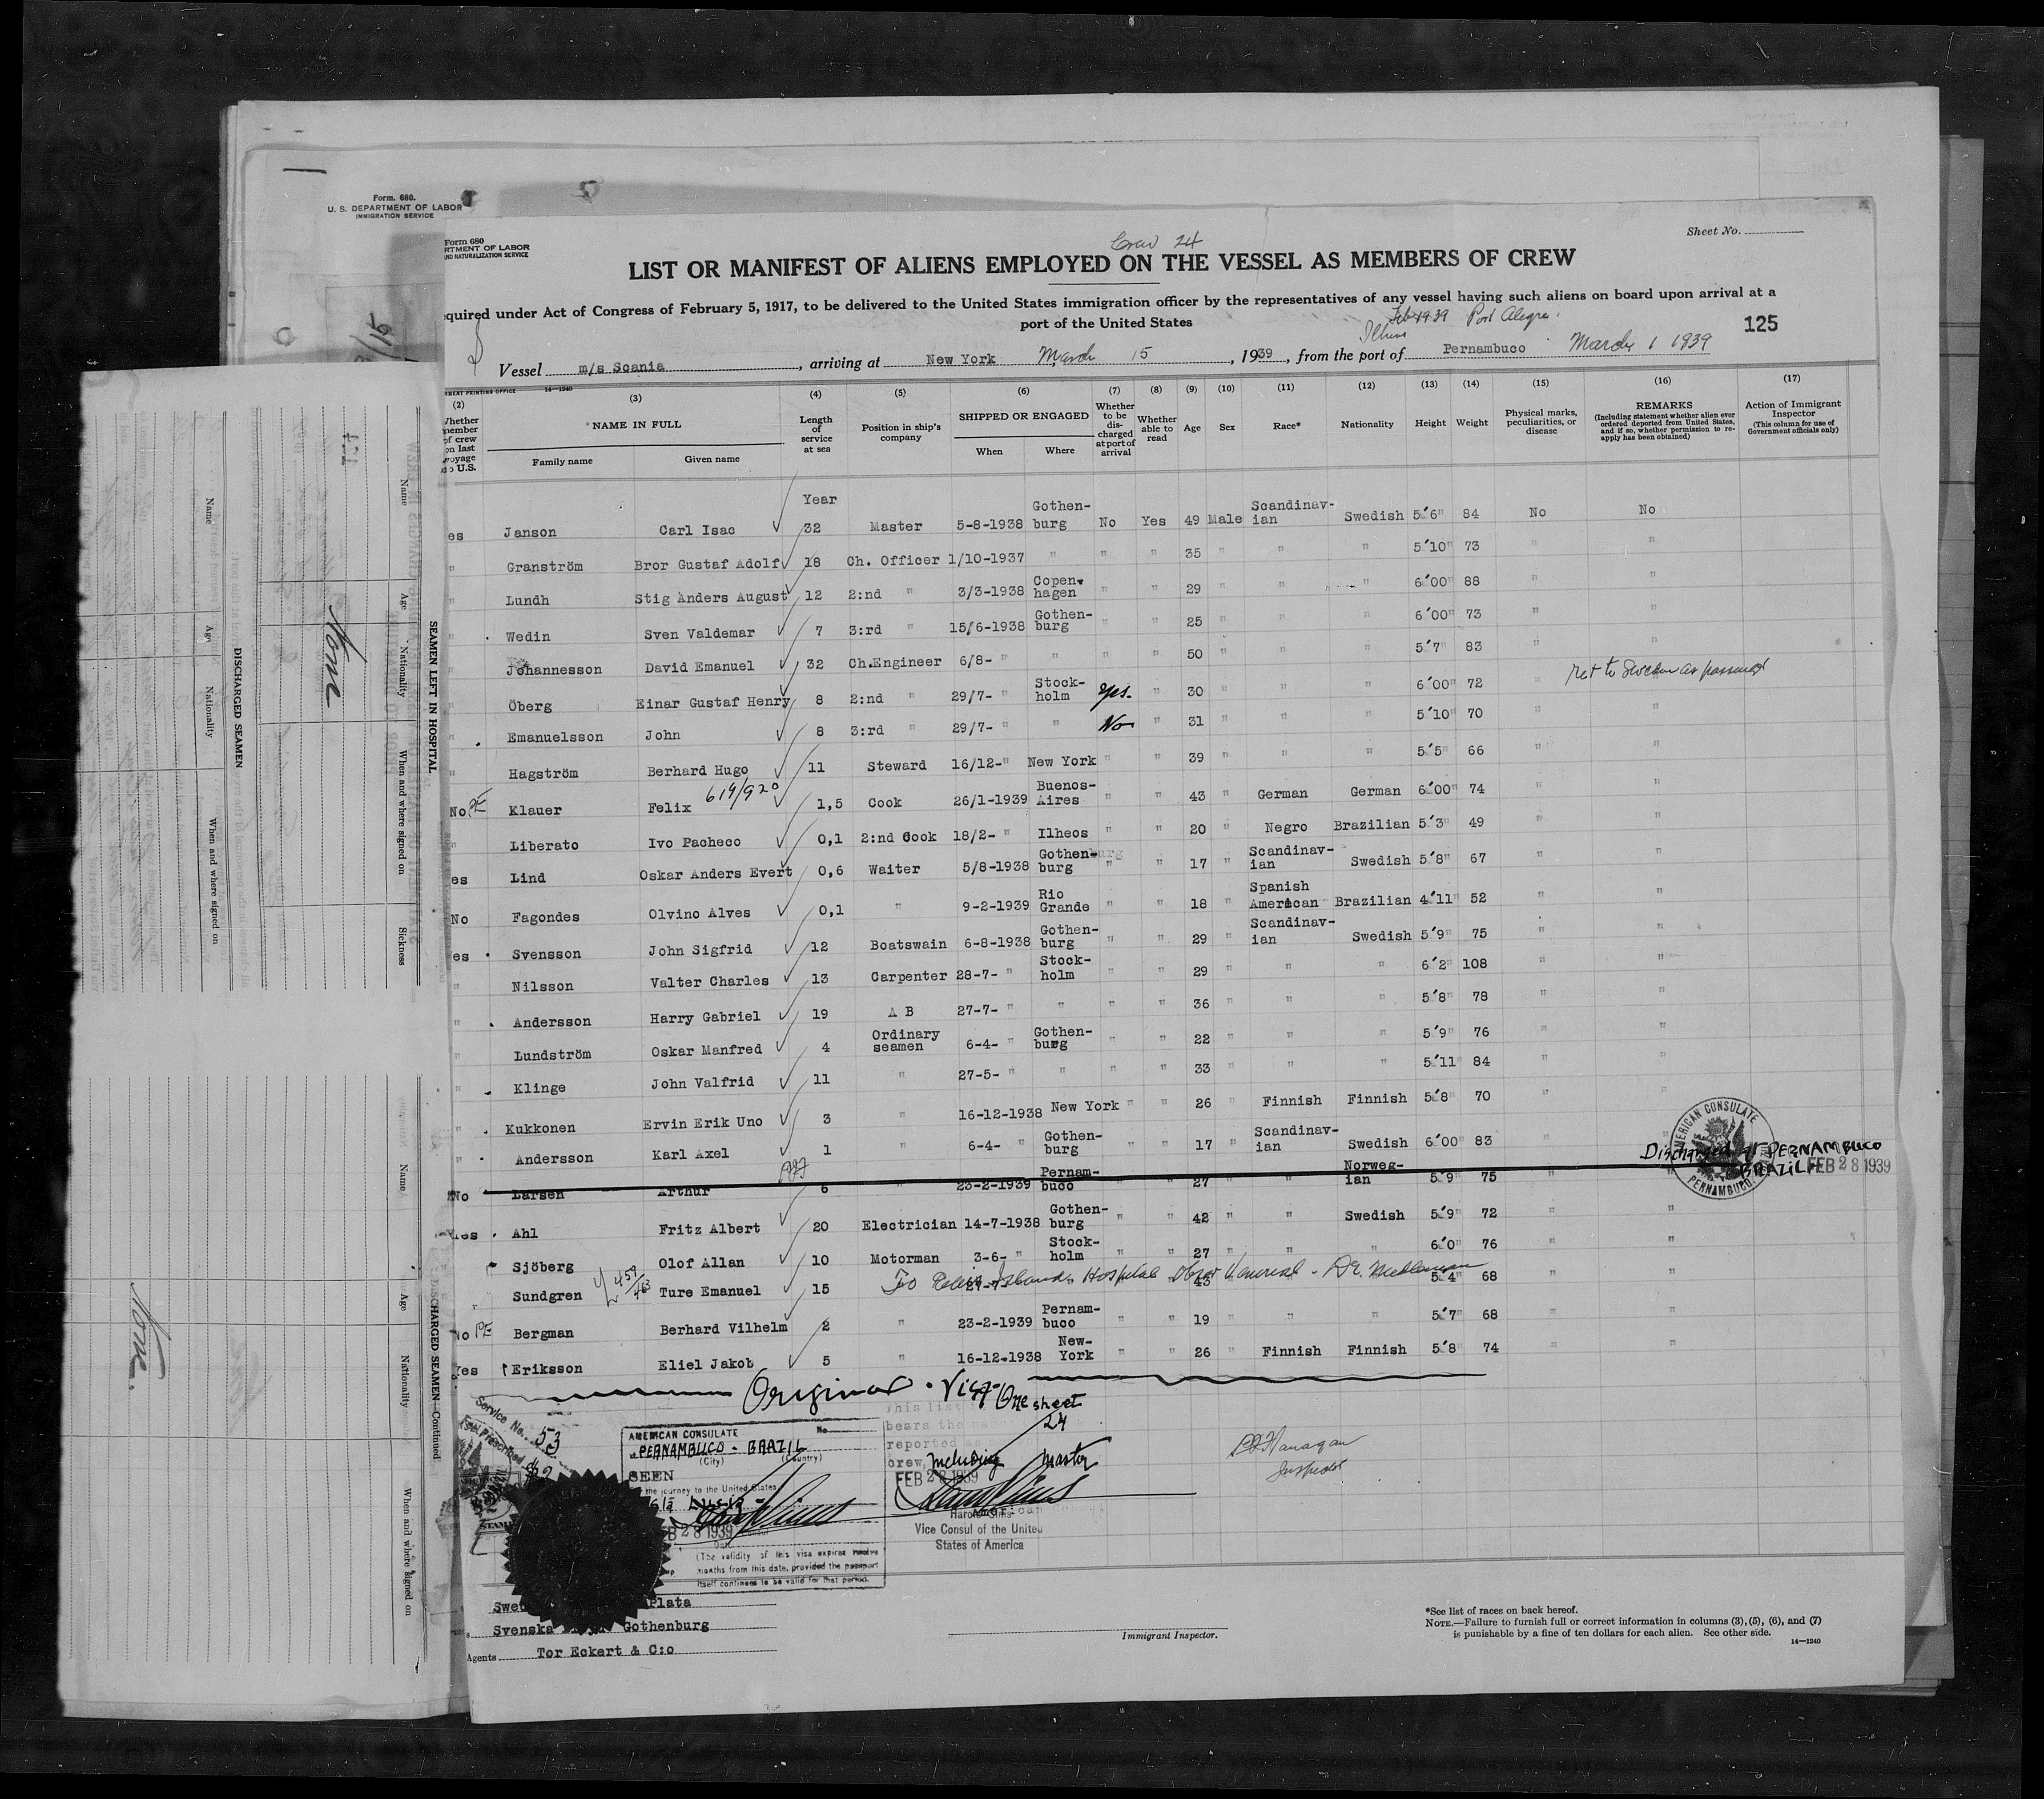 Form. 680.
U. S. DEPARTMENT OF LABOR
IMMIGRATION SERVICE
Form 680
RTMENT OF LABOR
ND NATURALIZATION SERVICE
Sheet No.
Crew 24
LIST OR MANIFEST OF ALIENS EMPLOYED ON THE VESSEL AS MEMBERS OF CREW
quired under Act of Congress of February 5, 1917, to be delivered to the United States immigration officer by the representatives of any vessel having such aliens on board upon arrival at a
port of the United States
1939 Port Alegre.
125
Vessel m/s Scania, arriving at New York March 15, 1939, from the port of Pernambuco March 1 1939
MENT PRINTING OFFICE 14—1240
(2) (3) (4) (5) (6) (7) (8) (9) (10) (11) (12) (13) (14) (15) (16) (17)
Whether member of crew on last voyage to U.S.
NAME IN FULL
Family name Given name
Length of service at sea
Position in ship's company
SHIPPED OR ENGAGED
When Where
Whether to be discharged at port of arrival
Whether able to read
Age Sex Race* Nationality Height Weight
Physical marks, peculiarities, or disease
REMARKS
(Including statement whether alien ever ordered deported from United States, and if so, whether permission to reapply has been obtained)
Action of Immigrant Inspector
(This column for use of Government officials only)
Year
es Janson Carl Isac 32 Master 5-8-1938 Gothen-burg No Yes 49 Male Scandinav-ian Swedish 5'6" 84 No No
" Granström Bror Gustaf Adolf 18 Ch. Officer 1/10-1937 " " " 35 " " " 5'10" 73 " "
" Lundh Stig Anders August 12 2:nd " 3/3-1938 Copen-hagen " " 29 " " " 6'00" 88 " "
" Wedin Sven Valdemar 7 3:rd " 15/6-1938 Gothen-burg " " 25 " " " 6'00" 73 " "
" Johannesson David Emanuel 32 Ch.Engineer 6/8- " " " " 50 " " " 5'7" 83 " "
ret to Sweden as passenger
" Öberg Einar Gustaf Henry 8 2:nd " 29/7- " Stock-holm Yes. " 30 " " " 6'00" 72 " "
" Emanuelsson John 8 3:rd " 29/7- " " No " 31 " " " 5'10" 70 " "
" Hagström Berhard Hugo 11 Steward 16/12-" New York " " 39 " " " 5'5" 66 " "
No PE Klauer Felix 619/920 1,5 Cook 26/1-1939 Buenos-Aires " " 43 " German German 6'00" 74 " "
" Liberato Ivo Pacheco 0,1 2:nd Cook 18/2- " Ilheos " " 20 " Negro Brazilian 5'3" 49 " "
es Lind Oskar Anders Evert 0,6 Waiter 5/8-1938 Gothen-burg " " 17 " Scandinav-ian Swedish 5'8" 67 " "
No Fagondes Olvino Alves 0,1 " 9-2-1939 Rio Grande " " 18 " Spanish American Brazilian 4'11" 52 " "
es Svensson John Sigfrid 12 Boatswain 6-8-1938 Gothen-burg " " 29 " Scandinav-ian Swedish 5'9" 75 " "
" Nilsson Valter Charles 13 Carpenter 28-7- " Stock-holm " " 29 " " " 6'2" 108 " "
" Andersson Harry Gabriel 19 A B 27-7- " " " " 36 " " " 5'8" 78 " "
" Lundström Oskar Manfred 4 Ordinary seamen 6-4- " Gothen-burg " " 22 " " " 5'9" 76 " "
" Klinge John Valfrid 11 " 27-5- " " " " 33 " " " 5'11" 84 " "
" Kukkonen Ervin Erik Uno 3 " 16-12-1938 New York " " 26 " Finnish Finnish 5'8" 70 " "
" Andersson Karl Axel 1 " 6-4- " Gothen-burg " " 17 " Scandinav-ian Swedish 6'00" 83 " "
Discharged at PERNAMBUCO
BRAZIL FEB 28 1939
AMERICAN CONSULATE
PERNAMBUCO
No Larsen Arthur 6 " 23-2-1939 Pernam-buco " " 27 " " Norweg-ian 5'9" 75 "
Yes Ahl Fritz Albert 20 Electrician 14-7-1938 Gothen-burg " " 42 " " Swedish 5'9" 72 " "
" Sjöberg Olof Allan 10 Motorman 3-6- " Stock-holm " " 27 " " " 6'0" 76 " "
To Ellis Islands Hospital Venereal - Dr.
" Sundgren 459/463 Ture Emanuel 15 43 5'4" 68 " "
No PE Bergman Berhard Vilhelm 2 " 23-2-1939 Pernam-buco " " 19 " " " 5'7" 68 " "
Yes Eriksson Eliel Jakob 5 " 16-12-1938 New-York " " 26 " Finnish Finnish 5'8" 74 " "
Original Visa
One sheet
This list
bears the
24
reported
crew, Including Master
FEB 28 1939
Service No. 53
Fee Prescribed $2
AMERICAN CONSULATE No
PERNAMBUCO - BRAZIL
(City) (Country)
SEEN
the journey to the United States
FEB 28 1939
(The validity of this visa expires twelve
months from this date, provided the passport
itself continues to be valid for that period.
Harold Sims
Vice Consul of the United
States of America
Flanagan
Inspector
Plata
Svenska Gothenburg
Agents Tor Eckert & C:o
Immigrant Inspector.
*See list of races on back hereof.
NOTE.—Failure to furnish full or correct information in columns (3), (5), (6), and (7)
is punishable by a fine of ten dollars for each alien. See other side.
14—1240
SEAMEN LEFT IN HOSPITAL
Name Age Nationality When and where signed on Sickness
None
DISCHARGED SEAMEN
Name Age Nationality When and where signed on
DISCHARGED SEAMEN—Continued
Name Age Nationality When and where signed on
None.